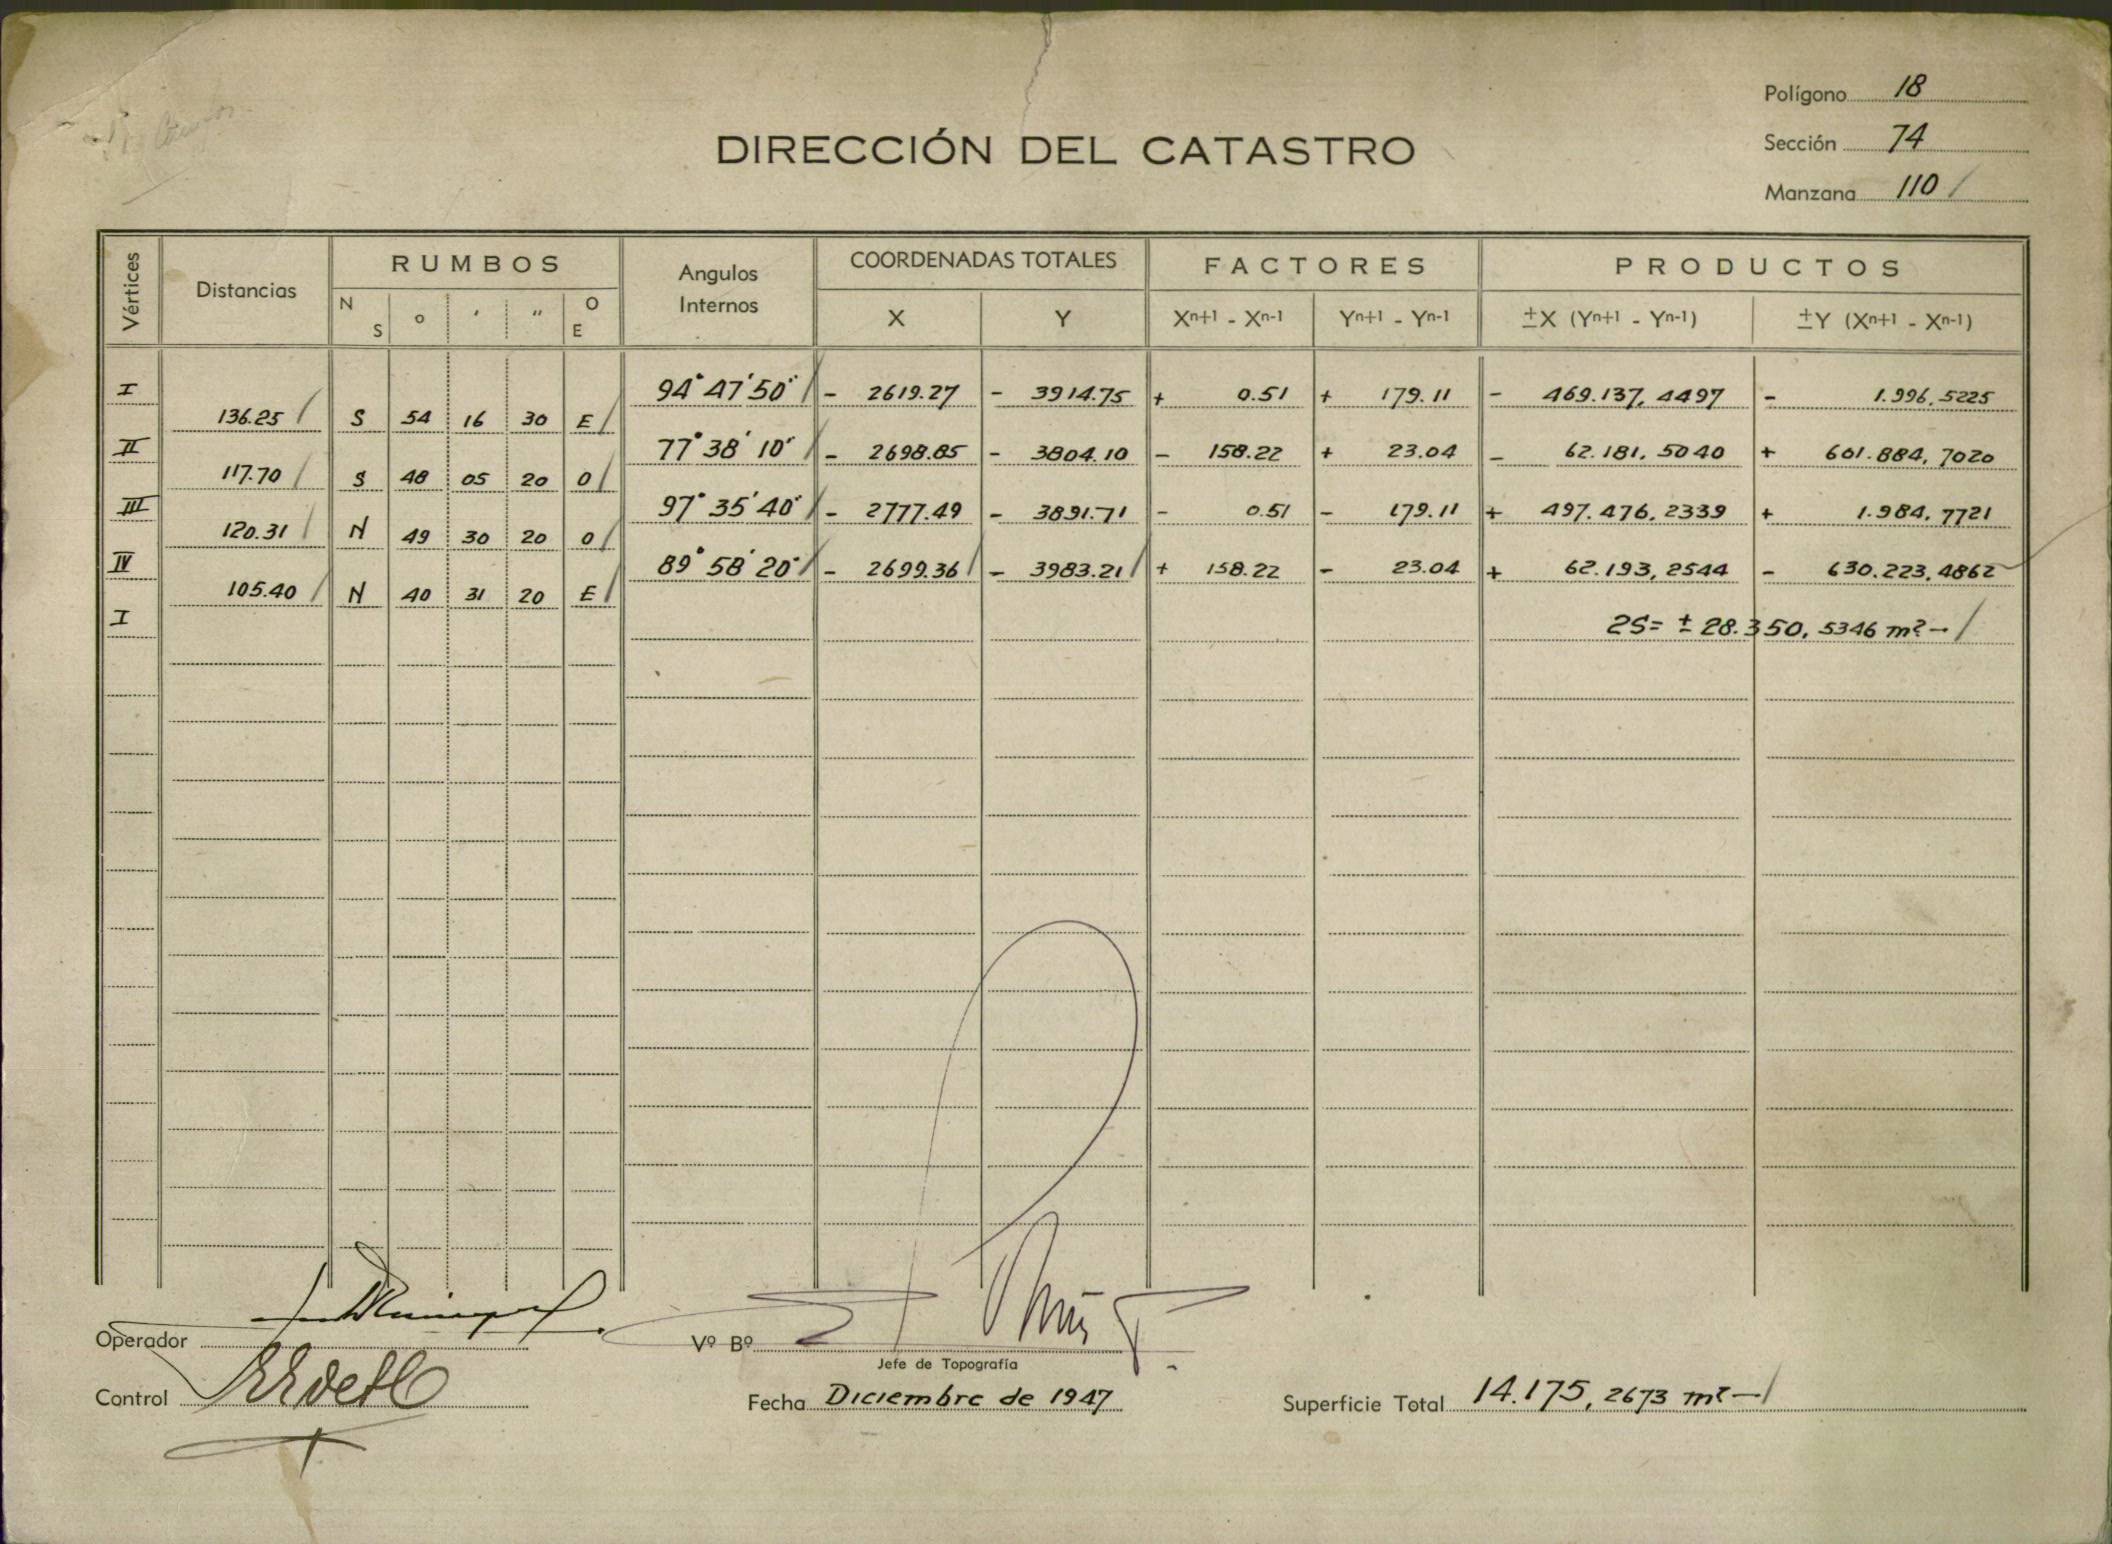 Polígono 18
DIRECCIÓN DEL CATASTRO
Sección 74
Manzana 110
Vértices Distancias RUMBOS Angulos Internos COORDENADAS TOTALES FACTORES PRODUCTOS
N S o ′ ″ O E X Y Xn+1 - Xn-1 Yn+1 - Yn-1 ±X (Yn+1 - Yn-1) ±Y (Xn+1 - Xn-1)
I 94° 47' 50" - 2619.27 - 3914.75 + 0.51 + 179.11 - 469.137,4497 - 1.996,5225
136.25 S 54 16 30 E
II 77° 38' 10" - 2698.85 - 3804.10 - 158.22 + 23.04 - 62.181,5040 + 601.884,7020
117.70 S 48 05 20 O
III 97° 35' 40" - 2777.49 - 3891.71 - 0.51 - 179.11 + 497.476,2339 + 1.984,7721
120.31 N 49 30 20 O
IV 89° 58' 20" - 2699.36 - 3983.21 + 158.22 - 23.04 + 62.193,2544 - 630.223,4862
105.40 N 40 31 20 E
I 2S= ± 28.350,5346 m²-
Operador
Vº Bº
Jefe de Topografía
Control
Fecha Diciembre de 1947
Superficie Total 14.175,2673 m²-